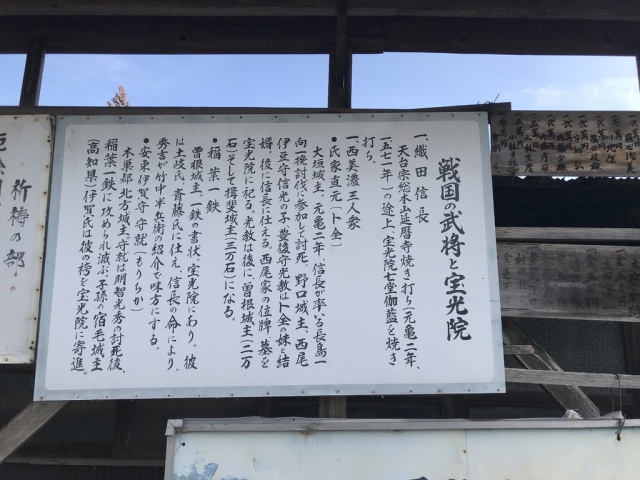 戦国の武将と宝光院
一、織田信長
天台宗総本山延暦寺焼き打ち(元亀二年、
一五七一年)の途上、宝光院七堂伽藍を焼き
打ち。
一、西美濃三人家
●氏家直元(卜全)
大垣城主、元亀二年、信長が率いる長島一
向一揆討伐に参加して討死。野口城主、西尾
伊豆守信光の子、豊後守光教は卜全の妹と結
婚、後に信長に仕える。西尾家の位牌、墓を
宝光院に祀る。光教は後に、曽根城主(二万
石)そして揖斐城主(三万石)になる。
●稲葉一鉄
曽根城主、一鉄の書状、宝光院にあり。彼
は土岐氏、斉藤氏に仕え、信長の命により、
秀吉が竹中半兵衛の紹介で味方にする。
●安東伊賀守守就(もりちか)
本巣郡北方城主、守就は明智光秀の討死後、
稲葉一鉄に攻められ滅ぶ。子孫の宿毛城主
(高知県)伊賀氏は彼の袴を宝光院に寄進。
祈祷の部